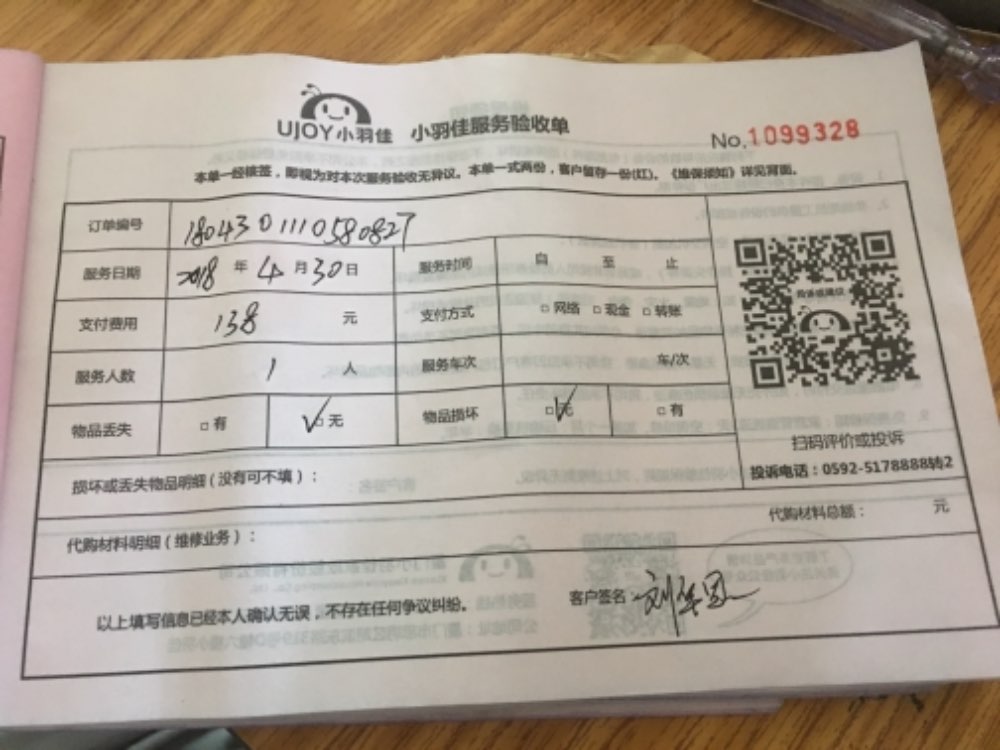 UJOY小羽佳 小羽佳服务验收单
No.1099328
本单一经核签，即视为对本次服务验收无异议。本单一式两份，客户留存一份(红)。《维保须知》详见背面。
订单编号 1804301110580827
服务日期 2018 年 4 月 30 日 服务时间 自 至 止
支付费用 138 元 支付方式 □网络 □现金 □转账
服务人数 1 人 服务车次 车/次
物品丢失 □有 ☑无 物品损坏 ☑无 □有
扫码评价或投诉
投诉电话：0592-5178888转2
损坏或丢失物品明细（没有可不填）：
代购材料明细（维修业务）： 代购材料总额： 元
以上填写信息已经本人确认无误，不存在任何争议纠纷。 客户签名：